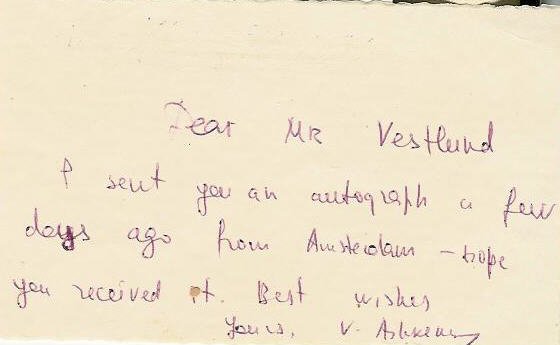 Dear MR Vestlund
I sent you an autograph a few
days ago from Amsterdam – hope
you received it. Best wishes
Yours, V. Ashkenazy